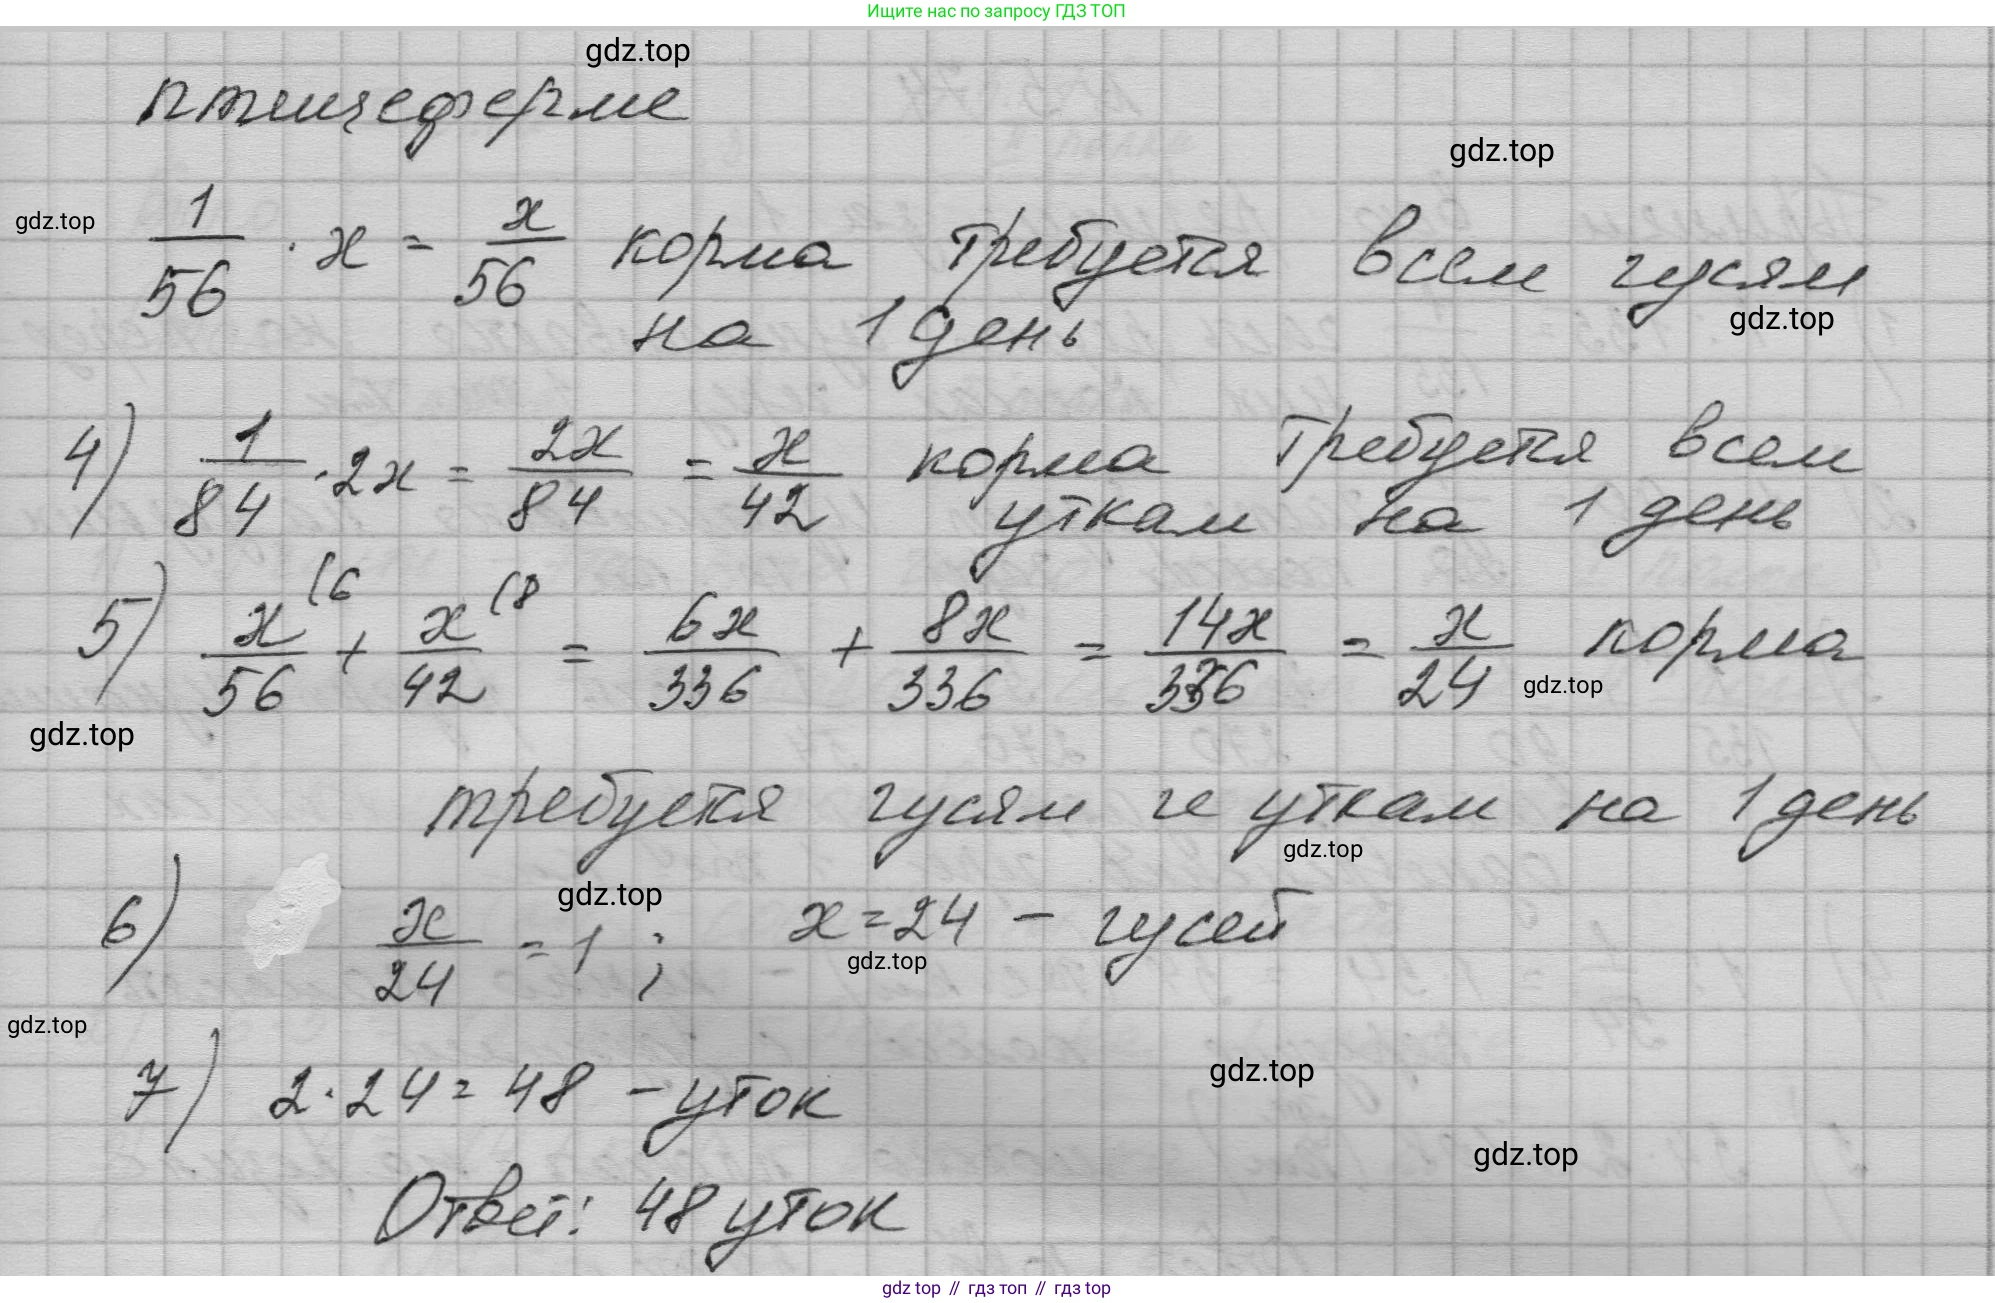 Ищите нас по запросу ГДЗ ТОП
gdz.top
птицеферме
gdz.top
gdz.top
1/56 · x = x/56 корма требуется всем гусям
gdz.top
на 1 день
4) 1/84 · 2x = 2x/84 = x/42 корма требуется всем
уткам на 1 день
5) x/56 (6 + x/42 (8 = 6x/336 + 8x/336 = 14x/336 = x/24 корма
gdz.top
gdz.top
требуется гусям и уткам на 1 день
gdz.top
gdz.top
6) x/24 = 1 ; x = 24 - гусей
gdz.top
gdz.top
7) 2 · 24 = 48 - уток
gdz.top
gdz.top
Ответ: 48 уток
gdz top // гдз топ // гдз top